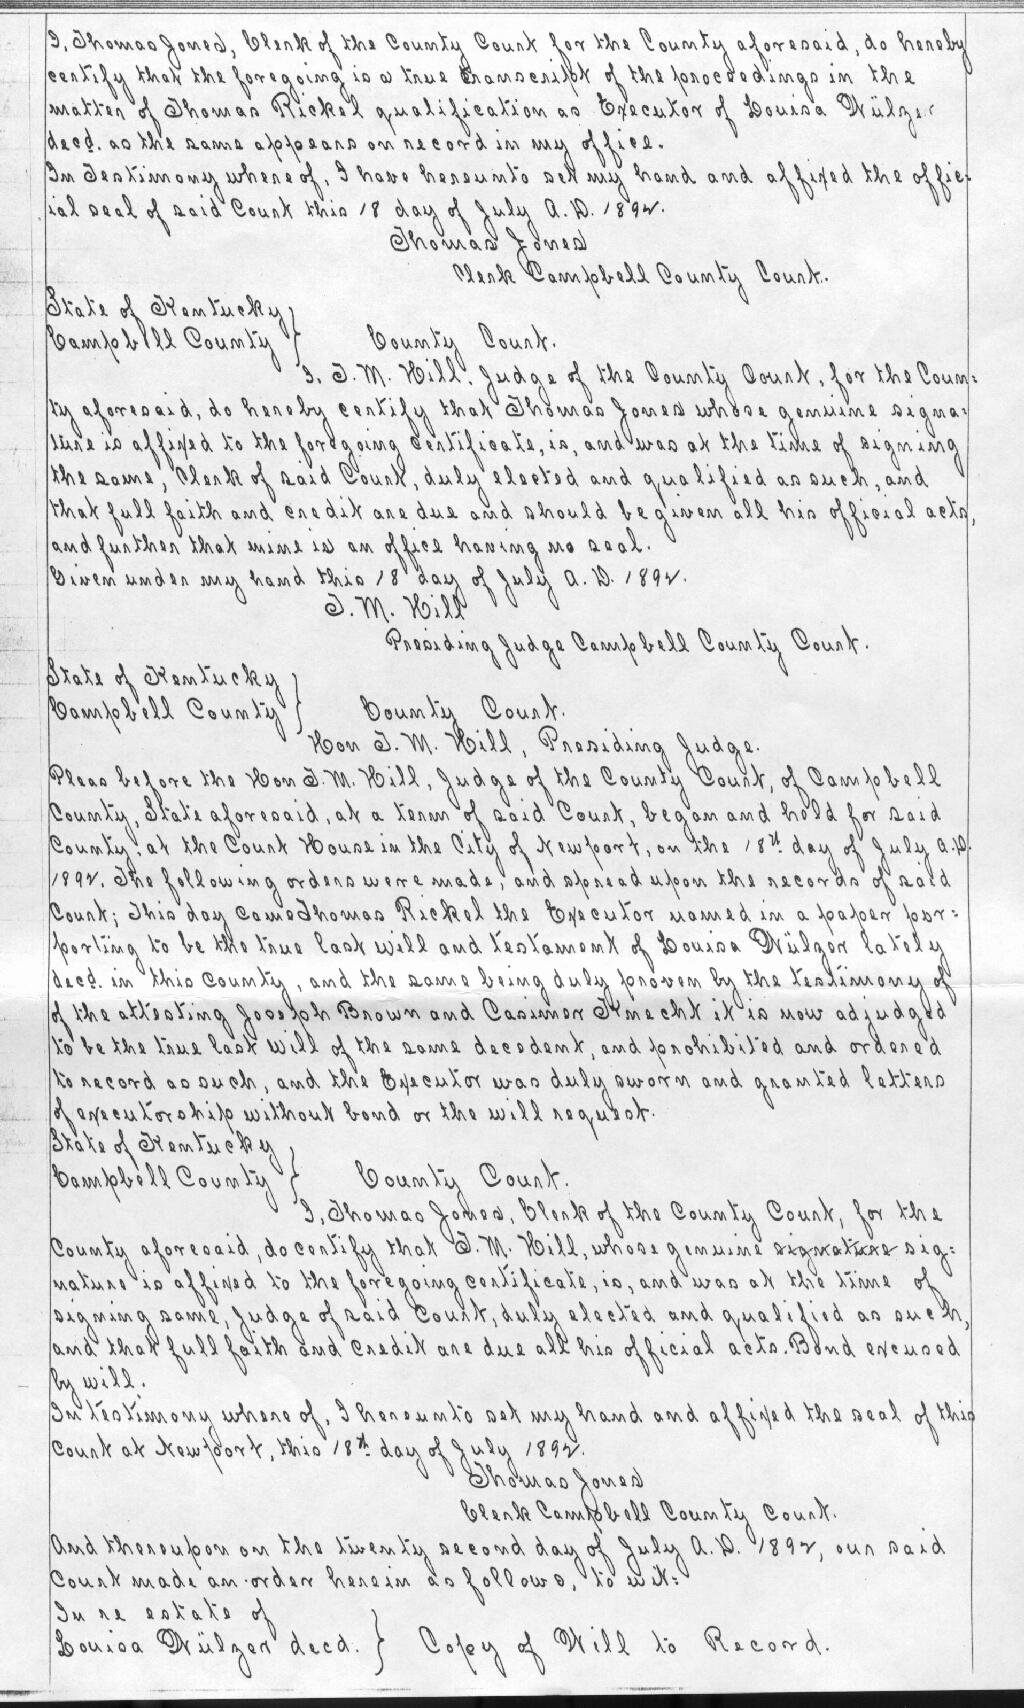 I, Thomas Jones, Clerk of the County Court for the County aforesaid, do hereby
certify that the foregoing is a true transcript of the proceedings in the
matter of Thomas Rickel qualification as Executor of Louisa Wülzer
decd. as the same appears on record in my office.
In Testimony whereof, I have hereunto set my hand and affixed the offic-
ial seal of said Court this 18 day of July A.D. 1892.
Thomas Jones
Clerk Campbell County Court.
State of Kentucky
Campbell County } County Court.
I, T. M. Hill, Judge of the County Court, for the Coun=
ty aforesaid, do hereby certify that Thomas Jones whose genuine signa=
ture is affixed to the foregoing certificate, is, and was at the time of signing
the same, Clerk of said Court, duly elected and qualified as such, and
that full faith and credit are due and should be given all his official acts,
and further that mine is an office having no seal.
Given under my hand this 18 day of July A.D. 1892.
T. M. Hill
Presiding Judge Campbell County Court.
State of Kentucky
Campbell County } County Court.
Hon T. M. Hill, Presiding Judge.
Pleas before the Hon T. M. Hill, Judge of the County Court, of Campbell
County, State aforesaid, at a term of said Court, began and held for said
County, at the Court House in the City of Newport, on the 18th day of July A.D.
1892. The following orders were made, and spread upon the records of said
Court; This day came Thomas Rickel the Executor named in a paper per=
porting to be the true last will and testament of Louisa Wülzer lately
decd. in this County, and the same being duly proven by the testimony of
of the attesting Joseph Brown and Casimer Knecht it is now adjudged
to be the true last will of the same decedent, and prohibited and ordered
to record as such, and the Executor was duly sworn and granted letters
of executorship without bond or the will request.
State of Kentucky
Campbell County } County Court.
I, Thomas Jones, Clerk of the County Court, for the
County aforesaid, do certify that T. M. Hill, whose genuine signature sig=
nature is affixed to the foregoing certificate, is, and was at the time of
signing same, Judge of said Court, duly elected and qualified as such,
and that full faith and credit are due all his official acts. Bond excused
by will.
In testimony whereof, I hereunto set my hand and affixed the seal of this
Court at Newport, this 18th day of July 1892.
Thomas Jones
Clerk Campbell County Court.
And thereupon on the twenty second day of July A.D. 1892, our said
Court made an order herein as follows, to wit:
In re estate of
Louisa Wülzer decd. } Copy of Will to Record.